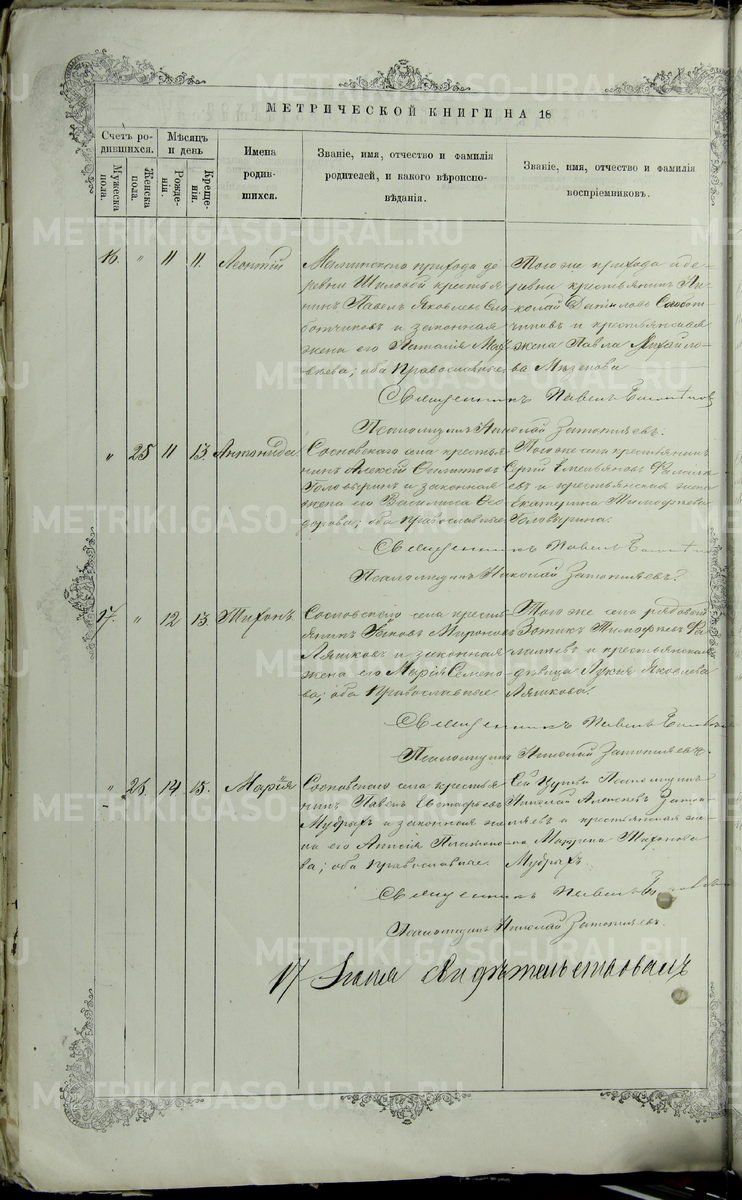 МЕТРИЧЕСКОЙ КНИГИ НА 18
Счетъ ро-
дившихся.
Мужеска
пола.
Женска
пола.
Мѣсяцъ
и день
Рожде-
нія.
Креще-
нія.
Имена
родив-
шихся.
Званіе, имя, отчество и фамилія
родителей, и какого вѣроиспо-
вѣданія.
Званіе, имя, отчество и фамилія
воспріемниковъ.
16. " 11 11. Леонтій
прихода де
ревни Шиловой крестья
нинъ Павелъ Яковлевъ
и законная
жена его Наталія
оба Православные.
Того же прихода и де-
ревни крестьянинъ Ни-
колай
и крестьянская
жена Павла Михайло-
ва
Священникъ Павелъ
Псаломщикъ Николай Затопляевъ.
" 25 11 13. Антонида
Сосновскаго села крестья
нинъ Алексій Филатовъ
Головыринъ и законная
жена его Василиса Ѳе
дорова; оба Православные.
Того же села крестьянинъ
Сергій Емельяновъ
и крестьянская жена
Екатерина Тимофеева
Головырина.
Священникъ Павелъ
Псаломщикъ Николай Затопляевъ.
17. " 12 13. Тихонъ.
Сосновскаго села кресть
янинъ Яковъ Мироновъ
Ляшковъ и законная
жена его Марія Семено-
ва; оба Православные
Того же села рядовой
Зотикъ Тимофеевъ
и крестьянская
дѣвица Лукія Яковлева
Ляшкова.
Священникъ Павелъ
Псаломщикъ Николай Затопляевъ.
" 26. 14 15. Марія
Сосновскаго села крестья
нинъ Павелъ Евстафіевъ
Мудрыхъ и законная же
на его Анисія Платоно-
ва; оба Православные.
Сей Церкви Псаломщикъ
Николай Алексѣевъ Затоп
ляевъ и крестьянская же
на Матрена Тихонова
Мудрыхъ.
Священникъ Павелъ
Псаломщикъ Николай Затопляевъ.
17 свидѣтельствовалъ
METRIKI.GASO-URAL.RU